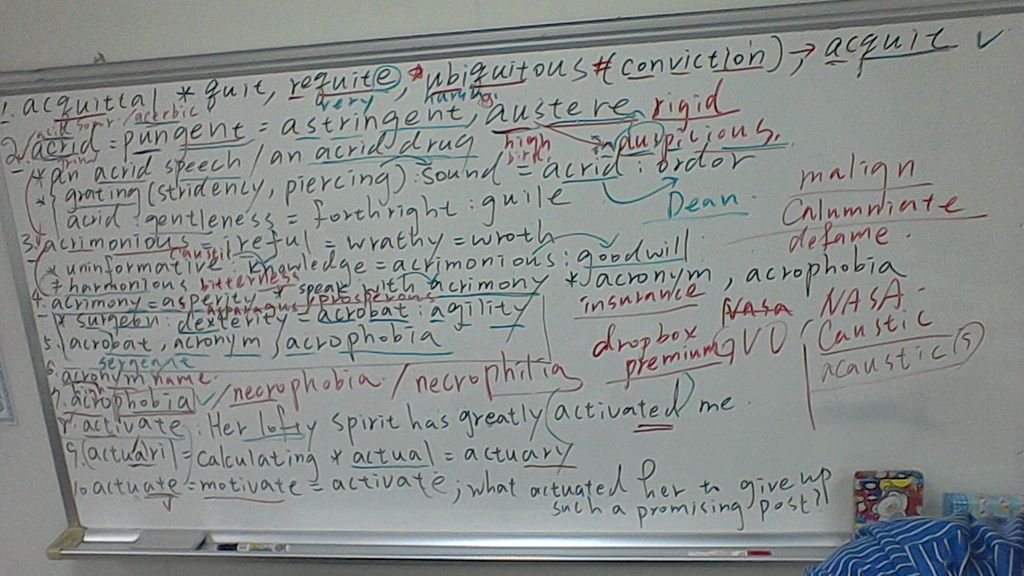 1. acquittal * quit, requite, * ubiquitous # (conviction) → acquit ✓
very harsh
acid sour / acerbic
2. acrid = pungent = astringent, austere rigid
* an acrid speech / an acrid drug high bird auspicious,
* { grating (stridency, piercing) : sound = acrid : ordor
acrid : gentleness = forthright : guile
Dean
malign
Calumniate
defame.
3. acrimonious = ireful = wrathy = wroth
caustic
* uninformative : knowledge = acrimonious : goodwill
≠ harmonious bitterness * speak with acrimony * acronym, acrophobia
4. acrimony = asperity asparagus / prosperous
insurance Nasa NASA
* surgeon : dexterity = acrobat : agility
5. (acrobat, acronym, acrophobia
dropbox
premium, VO
Caustic
acaustic(s)
sergeant
6. acronym name.
7. acrophobia ✓ / necrophobia / necrophilia
high
8. activate : Her lofty spirit has greatly activated me.
9. (actuari) = calculating * actual = actuary
10. actuate = motivate = activate ; what actuated her to give up
such a promising post?